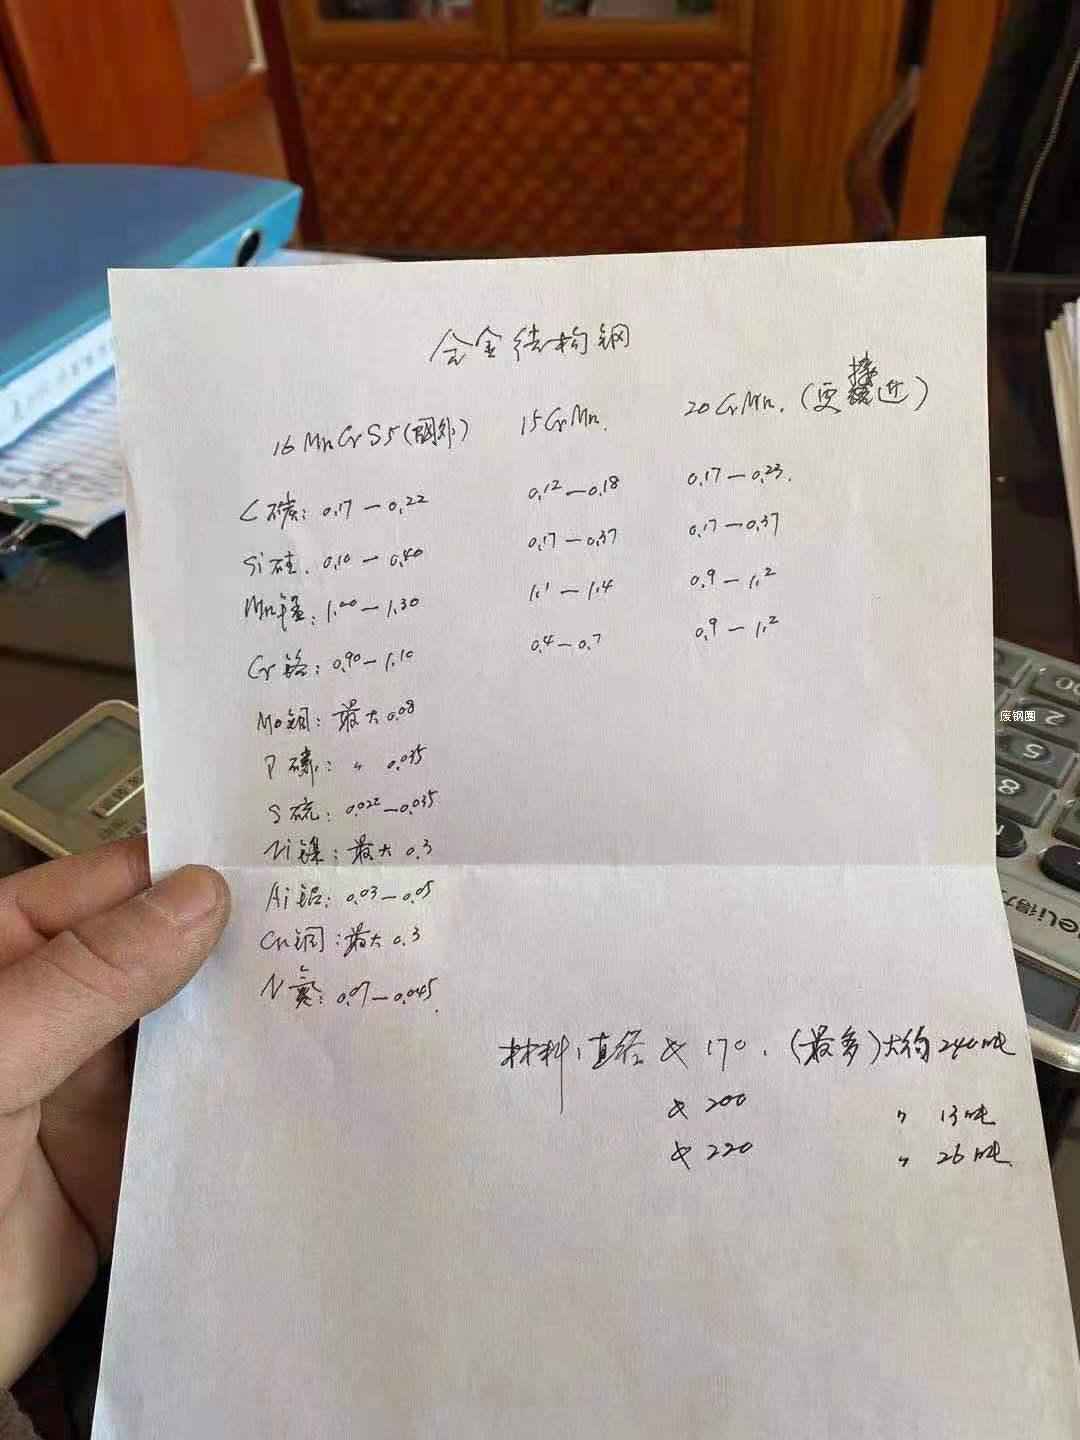 合金结构钢
16MnCrS5(国外) 15CrMn. 20CrMn.(更接近)
C碳: 0.17—0.22 0.12—0.18 0.17—0.23.
Si硅. 0.10—0.40 0.17—0.37 0.17—0.37
Mn锰: 1.00—1.30 1.1—1.4 0.9—1.2
Cr铬: 0.90—1.10 0.4—0.7 0.9—1.2
Mo钼: 最大0.08
P磷: 〃 0.035
S硫: 0.022—0.035
Ni镍: 最大0.3
Ai铝: 0.03—0.05
Cu铜: 最大0.3
N氮: 0.07—0.045.
材料: 直径 ф170. (最多)大约240吨
ф200 〃 13吨
ф220 〃 26吨.
废钢圈
00
2
5
8
deli得力